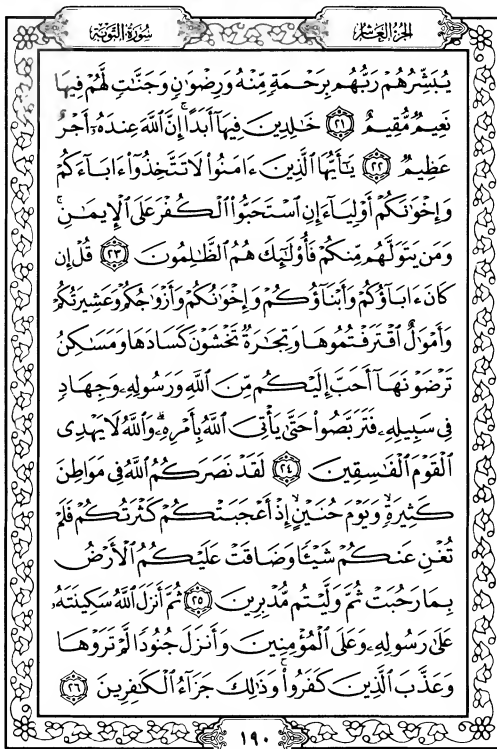 سُورَةُ التَّوْبَةِ
الجُزْءُ العَاشِرُ
يُبَشِّرُهُمْ رَبُّهُم بِرَحْمَةٍ مِّنْهُ وَرِضْوَٰنٍ وَجَنَّٰتٍ لَّهُمْ فِيهَا
نَعِيمٌ مُّقِيمٌ ٢١ خَٰلِدِينَ فِيهَآ أَبَدًاۚ إِنَّ ٱللَّهَ عِندَهُۥٓ أَجْرٌ
عَظِيمٌ ٢٢ يَٰٓأَيُّهَا ٱلَّذِينَ ءَامَنُوا۟ لَا تَتَّخِذُوٓا۟ ءَابَآءَكُمْ
وَإِخْوَٰنَكُمْ أَوْلِيَآءَ إِنِ ٱسْتَحَبُّوا۟ ٱلْكُفْرَ عَلَى ٱلْإِيمَٰنِۚ
وَمَن يَتَوَلَّهُم مِّنكُمْ فَأُو۟لَٰٓئِكَ هُمُ ٱلظَّٰلِمُونَ ٢٣ قُلْ إِن
كَانَ ءَابَآؤُكُمْ وَأَبْنَآؤُكُمْ وَإِخْوَٰنُكُمْ وَأَزْوَٰجُكُمْ وَعَشِيرَتُكُمْ
وَأَمْوَٰلٌ ٱقْتَرَفْتُمُوهَا وَتِجَٰرَةٌ تَخْشَوْنَ كَسَادَهَا وَمَسَٰكِنُ
تَرْضَوْنَهَآ أَحَبَّ إِلَيْكُم مِّنَ ٱللَّهِ وَرَسُولِهِۦ وَجِهَادٍ
فِى سَبِيلِهِۦ فَتَرَبَّصُوا۟ حَتَّىٰ يَأْتِىَ ٱللَّهُ بِأَمْرِهِۦۗ وَٱللَّهُ لَا يَهْدِى
ٱلْقَوْمَ ٱلْفَٰسِقِينَ ٢٤ لَقَدْ نَصَرَكُمُ ٱللَّهُ فِى مَوَاطِنَ
كَثِيرَةٍۙ وَيَوْمَ حُنَيْنٍۙ إِذْ أَعْجَبَتْكُمْ كَثْرَتُكُمْ فَلَمْ
تُغْنِ عَنكُمْ شَيْـًٔا وَضَاقَتْ عَلَيْكُمُ ٱلْأَرْضُ
بِمَا رَحُبَتْ ثُمَّ وَلَّيْتُم مُّدْبِرِينَ ٢٥ ثُمَّ أَنزَلَ ٱللَّهُ سَكِينَتَهُۥ
عَلَىٰ رَسُولِهِۦ وَعَلَى ٱلْمُؤْمِنِينَ وَأَنزَلَ جُنُودًا لَّمْ تَرَوْهَا
وَعَذَّبَ ٱلَّذِينَ كَفَرُوا۟ۚ وَذَٰلِكَ جَزَآءُ ٱلْكَٰفِرِينَ ٢٦
١٩٠